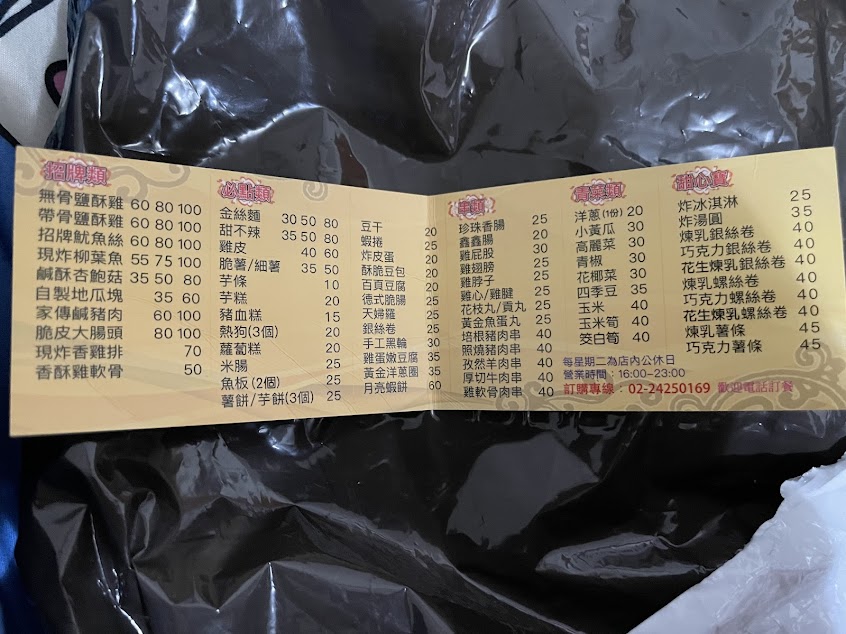 招牌類
無骨鹽酥雞 60 80 100
帶骨鹽酥雞 60 80 100
招牌魷魚絲 60 80 100
現炸柳葉魚 55 75 100
鹹酥杏鮑菇 35 50 80
自製地瓜塊 35 60
家傳鹹豬肉 60 100
脆皮大腸頭 80 100
現炸香雞排 70
香酥雞軟骨 50
必點類
金絲麵 30 50 80
甜不辣 35 50 80
雞皮 40 60
脆薯/細薯 35 50
芋條 10
芋粿 20
豬血糕 15
熱狗(3個) 20
蘿蔔糕 20
米腸 25
魚板(2個) 25
薯餅/芋餅(3個) 25
豆干 20
蝦捲 20
炸皮蛋 20
酥脆豆包 20
百頁豆腐 20
德式脆腸 25
天婦羅 25
銀絲卷 25
手工黑輪 30
雞蛋嫩豆腐 35
黃金洋蔥圈 35
月亮蝦餅 60
串類
珍珠香腸 25
鑫鑫腸 20
雞屁股 30
雞翅膀 25
雞脖子 25
雞心/雞腱 25
花枝丸/貢丸 25
黃金魚蛋丸 25
培根豬肉串 40
照燒豬肉串 40
孜然羊肉串 40
厚切牛肉串 40
雞軟骨肉串 40
青菜類
洋蔥(1份) 20
小黃瓜 30
高麗菜 30
青椒 30
花椰菜 30
四季豆 35
玉米 40
玉米筍 40
筊白筍 40
甜心寶
炸冰淇淋 25
炸湯圓 35
煉乳銀絲卷 40
巧克力銀絲卷 40
花生煉乳銀絲卷 40
煉乳螺絲卷 40
巧克力螺絲卷 40
花生煉乳螺絲卷 40
煉乳薯條 45
巧克力薯條 45
每星期二為店內公休日
營業時間：16:00~23:00
訂購專線：02-24250169 歡迎電話訂餐